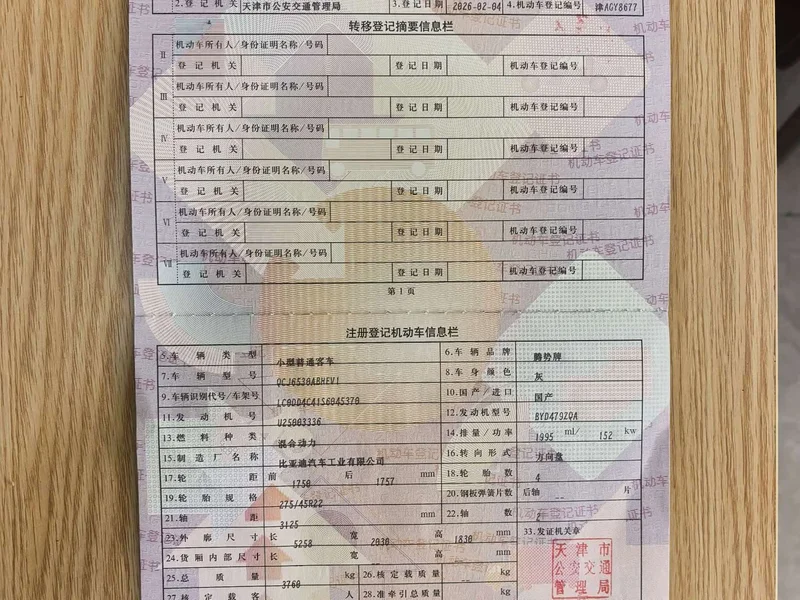 2.登记机关 天津市公安交通管理局 3.登记日期 2026-02-04 4.机动车登记编号 津AGY8677
转移登记摘要信息栏
Ⅱ 机动车所有人/身份证明名称/号码
登记机关 登记日期 机动车登记编号
Ⅲ 机动车所有人/身份证明名称/号码
登记机关 登记日期 机动车登记编号
Ⅳ 机动车所有人/身份证明名称/号码
登记机关 登记日期 机动车登记编号
Ⅴ 机动车所有人/身份证明名称/号码
登记机关 登记日期 机动车登记编号
Ⅵ 机动车所有人/身份证明名称/号码
登记机关 登记日期 机动车登记编号
Ⅶ 机动车所有人/身份证明名称/号码
登记机关 登记日期 机动车登记编号
第1页
注册登记机动车信息栏
5.车辆类型 小型普通客车 6.车辆品牌 腾势牌
7.车辆型号 QCJ6530ABHEV1 8.车身颜色 灰
9.车辆识别代号/车架号 LC0DD4C41S6045370 10.国产/进口 国产
11.发动机号 U25003336 12.发动机型号 BYD479ZQA
13.燃料种类 混合动力 14.排量/功率 1995 ml/ 152 kw
15.制造厂名称 比亚迪汽车工业有限公司 16.转向形式 方向盘
17.轮距 前 1750 后 1757 mm 18.轮胎数 4
19.轮胎规格 275/45R22 20.钢板弹簧片数 后轴 -- 片
21.轴距 3125 mm 22.轴数 2
23.外廓尺寸 长 5258 宽 2030 高 1830 mm 33.发证机关章
24.货厢内部尺寸 长 -- 宽 -- 高 -- mm
25.总质量 3760 kg 26.核定载质量 -- kg
27.核定载客 人 28.准牵引总质量 kg
天津市
公安交通
管理局
机动车登记证书